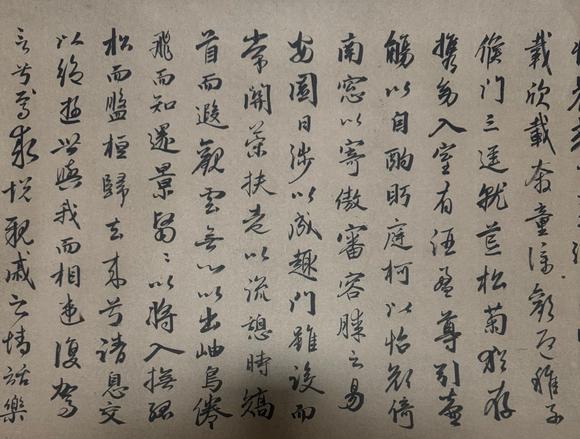 載欣載奔童僕歡迎稚子
候門三逕就荒松菊猶存
攜幼入室有酒盈尊引壺
觴以自酌眄庭柯以怡顏倚
南窓以寄傲審容膝之易
安園日涉以成趣門雖設而
常關策扶老以流憩時矯
首而遐觀雲無心以出岫鳥倦
飛而知還景翳〻以將入撫孤
松而盤桓歸去來兮請息交
以絕遊世與我而相違復駕
言兮焉求悅親戚之情話樂